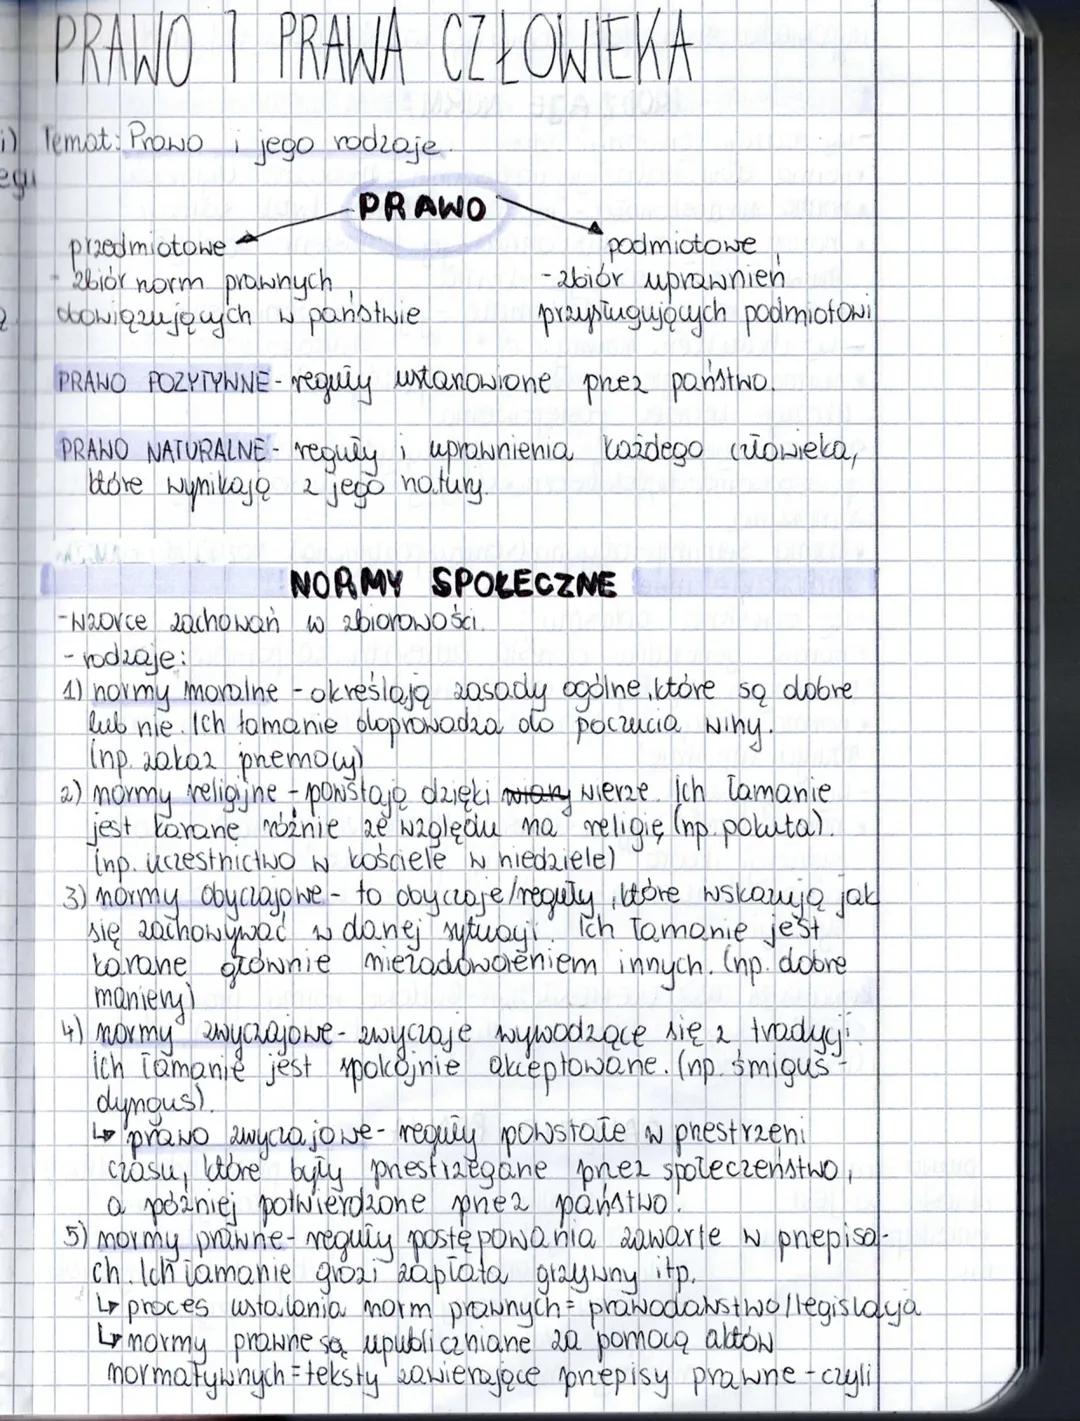 PRAWO I PRAWA CZŁOWIEKA
Temat: Prawo i jego rodzaje.
PRAWO
przedmiotowe
- zbiór norm prawnych
obowiązujących w państwie
podmiotowe
- zbiór uprawnień
przysługujących podmiotowi
PRAWO POZYTYWNE - reguły ustanowione przez państwo.
PRAWO NATURALNE - reguły i uprawnienia każdego człowieka,
które wynikają z jego natury.
NORMY SPOŁECZNE
- wzorce zachowań w zbiorowości.
- rodzaje:
1) normy moralne - określają zasady ogólne, które są dobre
lub nie. Ich łamanie doprowadza do poczucia winy.
(np. zakaz przemocy)
2) normy religijne - powstają dzięki wiary wierze. Ich łamanie
jest karane różnie ze względu na religię (np. pokuta).
(np. uczestnictwo w kościele w niedziele)
3) normy obyczajowe - to obyczaje/reguły, które wskazują jak
się zachowywać w danej sytuacji. Ich łamanie jest
karane głównie niezadowoleniem innych. (np. dobre
maniery)
4) normy zwyczajowe - zwyczaje wywodzące się z tradycji.
ich łamanie jest spokojnie akceptowane. (np. śmigus-
dyngus).
↳ prawo zwyczajowe - reguły powstałe w przestrzeni
czasu, które były przestrzegane przez społeczeństwo,
a później potwierdzone przez państwo.
5) normy prawne - reguły postępowania zawarte w przepisa-
ch. Ich łamanie grozi zapłatą grzywny itp.
↳ proces ustalania norm prawnych = prawodawstwo/legislacja
↳ normy prawne są upubliczniane za pomocą aktów
normatywnych = teksty zawierające przepisy prawne - czyli